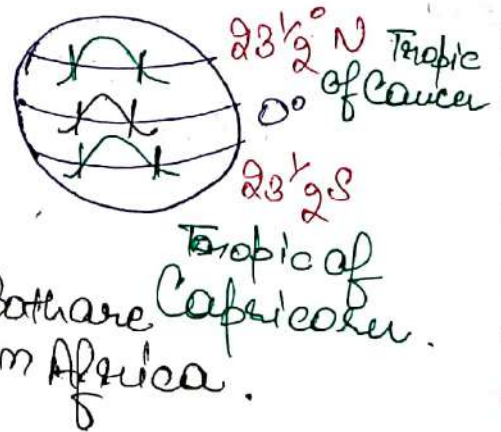 23½° N Tropic
of Cancer
0°
23½S
Tropic of
Capricorn.
Both are
in Africa.